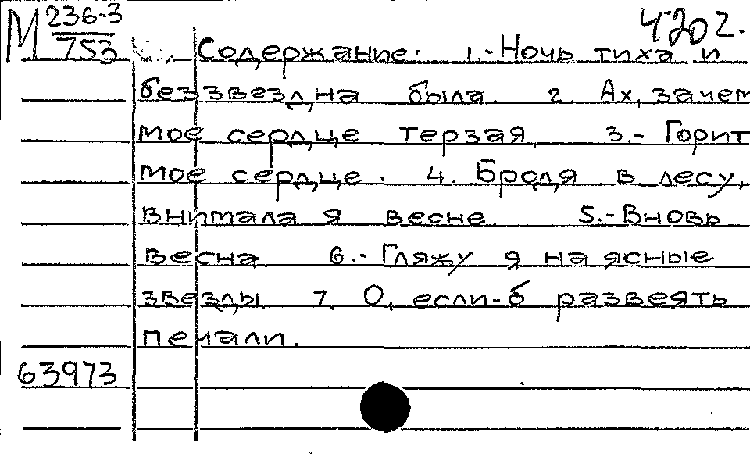 М 236-3
753
4-20 г.
Содержание. 1.- Ночь тиха и
беззвездна была. 2. Ах, зачем
мое сердце терзая. 3.- Горит
мое сердце. 4. Бродя в лесу,
внимала я весне 5.- Вновь
весна 6.- Гляжу я на ясные
звезды. 7. О, если-б развеять
печали.
63973